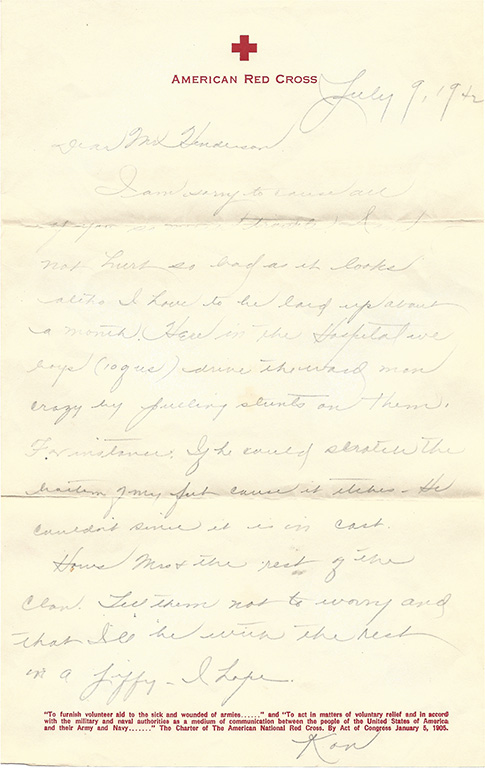 AMERICAN RED CROSS
July 9, 1942
Dear Mr Henderson.
I am sorry to cause all
of you so much trouble
not hurt so bad as it looks
altho I have to be laid up about
a month. Here in the Hospital we
boys (10 of us) drive the ward man
crazy by pulling stunts on them.
For instance. If he could scratch the
bottom of my foot cause it itches - He
couldn't since it is in cast.
Hows Mrs & the rest of the
Clan. Tell them not to worry and
that I'll be with the rest
in a jiffy - I hope.
"To furnish volunteer aid to the sick and wounded of armies......" and "To act in matters of voluntary relief and in accord
with the military and naval authorities as a medium of communication between the people of the United States of America
and their Army and Navy......." The Charter of The American National Red Cross. By Act of Congress January 5, 1905.